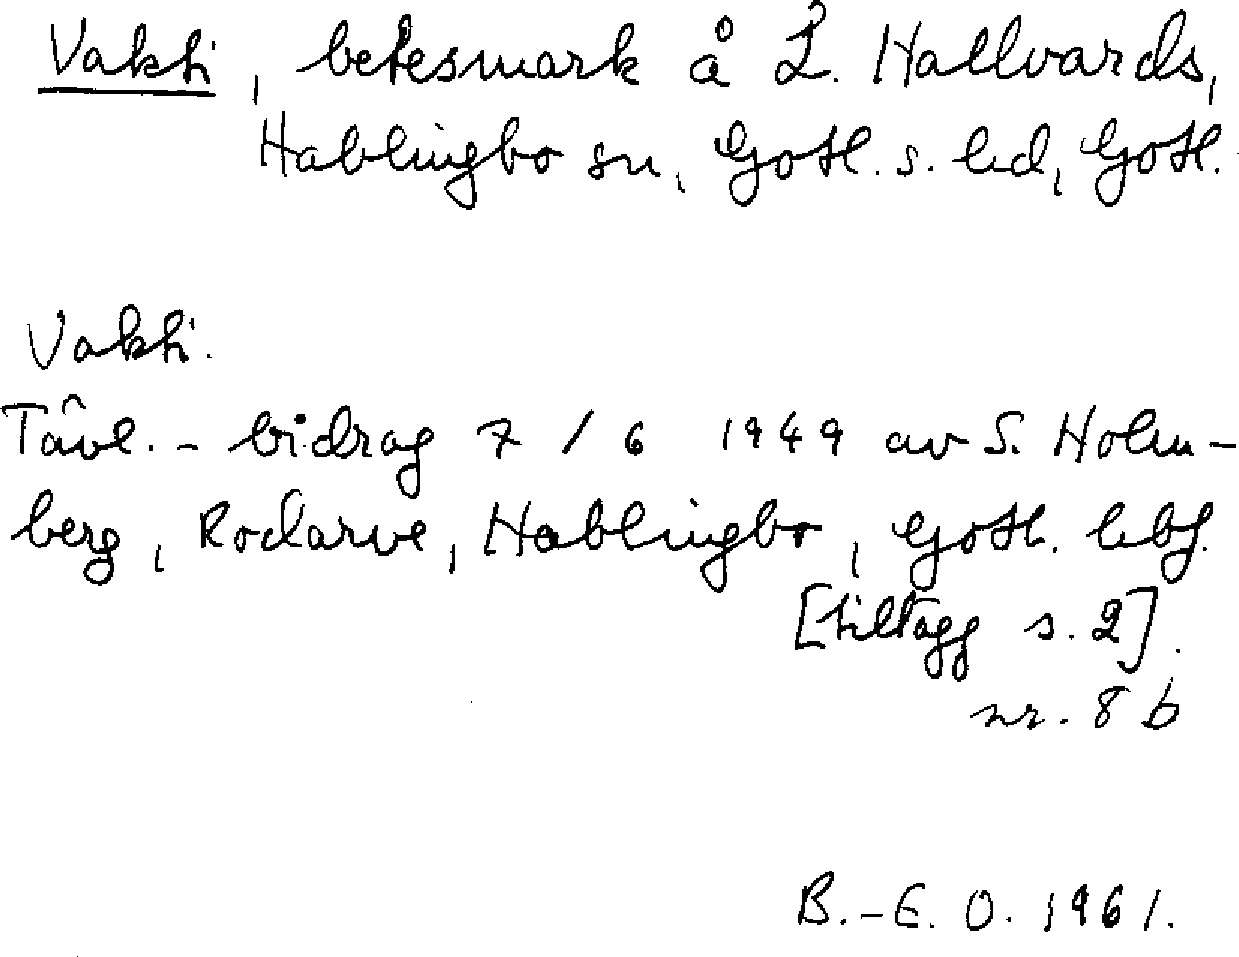 Vakti, betesmark å L. Hallvards,
Hablingbo sn, Gotl. s. hd, Gotl.
Vakti.
Tävl.-bidrag 7/6 1949 av S. Holm-
berg, Rodarve, Hablingbo, Gotl. hbf.
[tillägg s. 2].
nr. 8 b
B.-E. O. 1961.